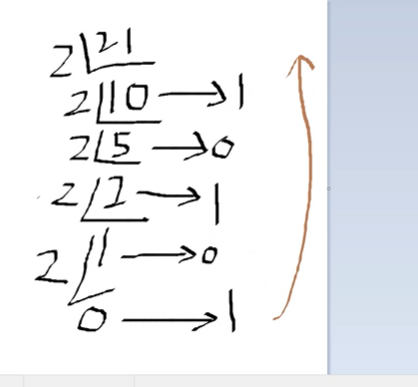 2 21
2 10 → 1
2 5 → 0
2 2 → 1
2 1 → 0
0 → 1